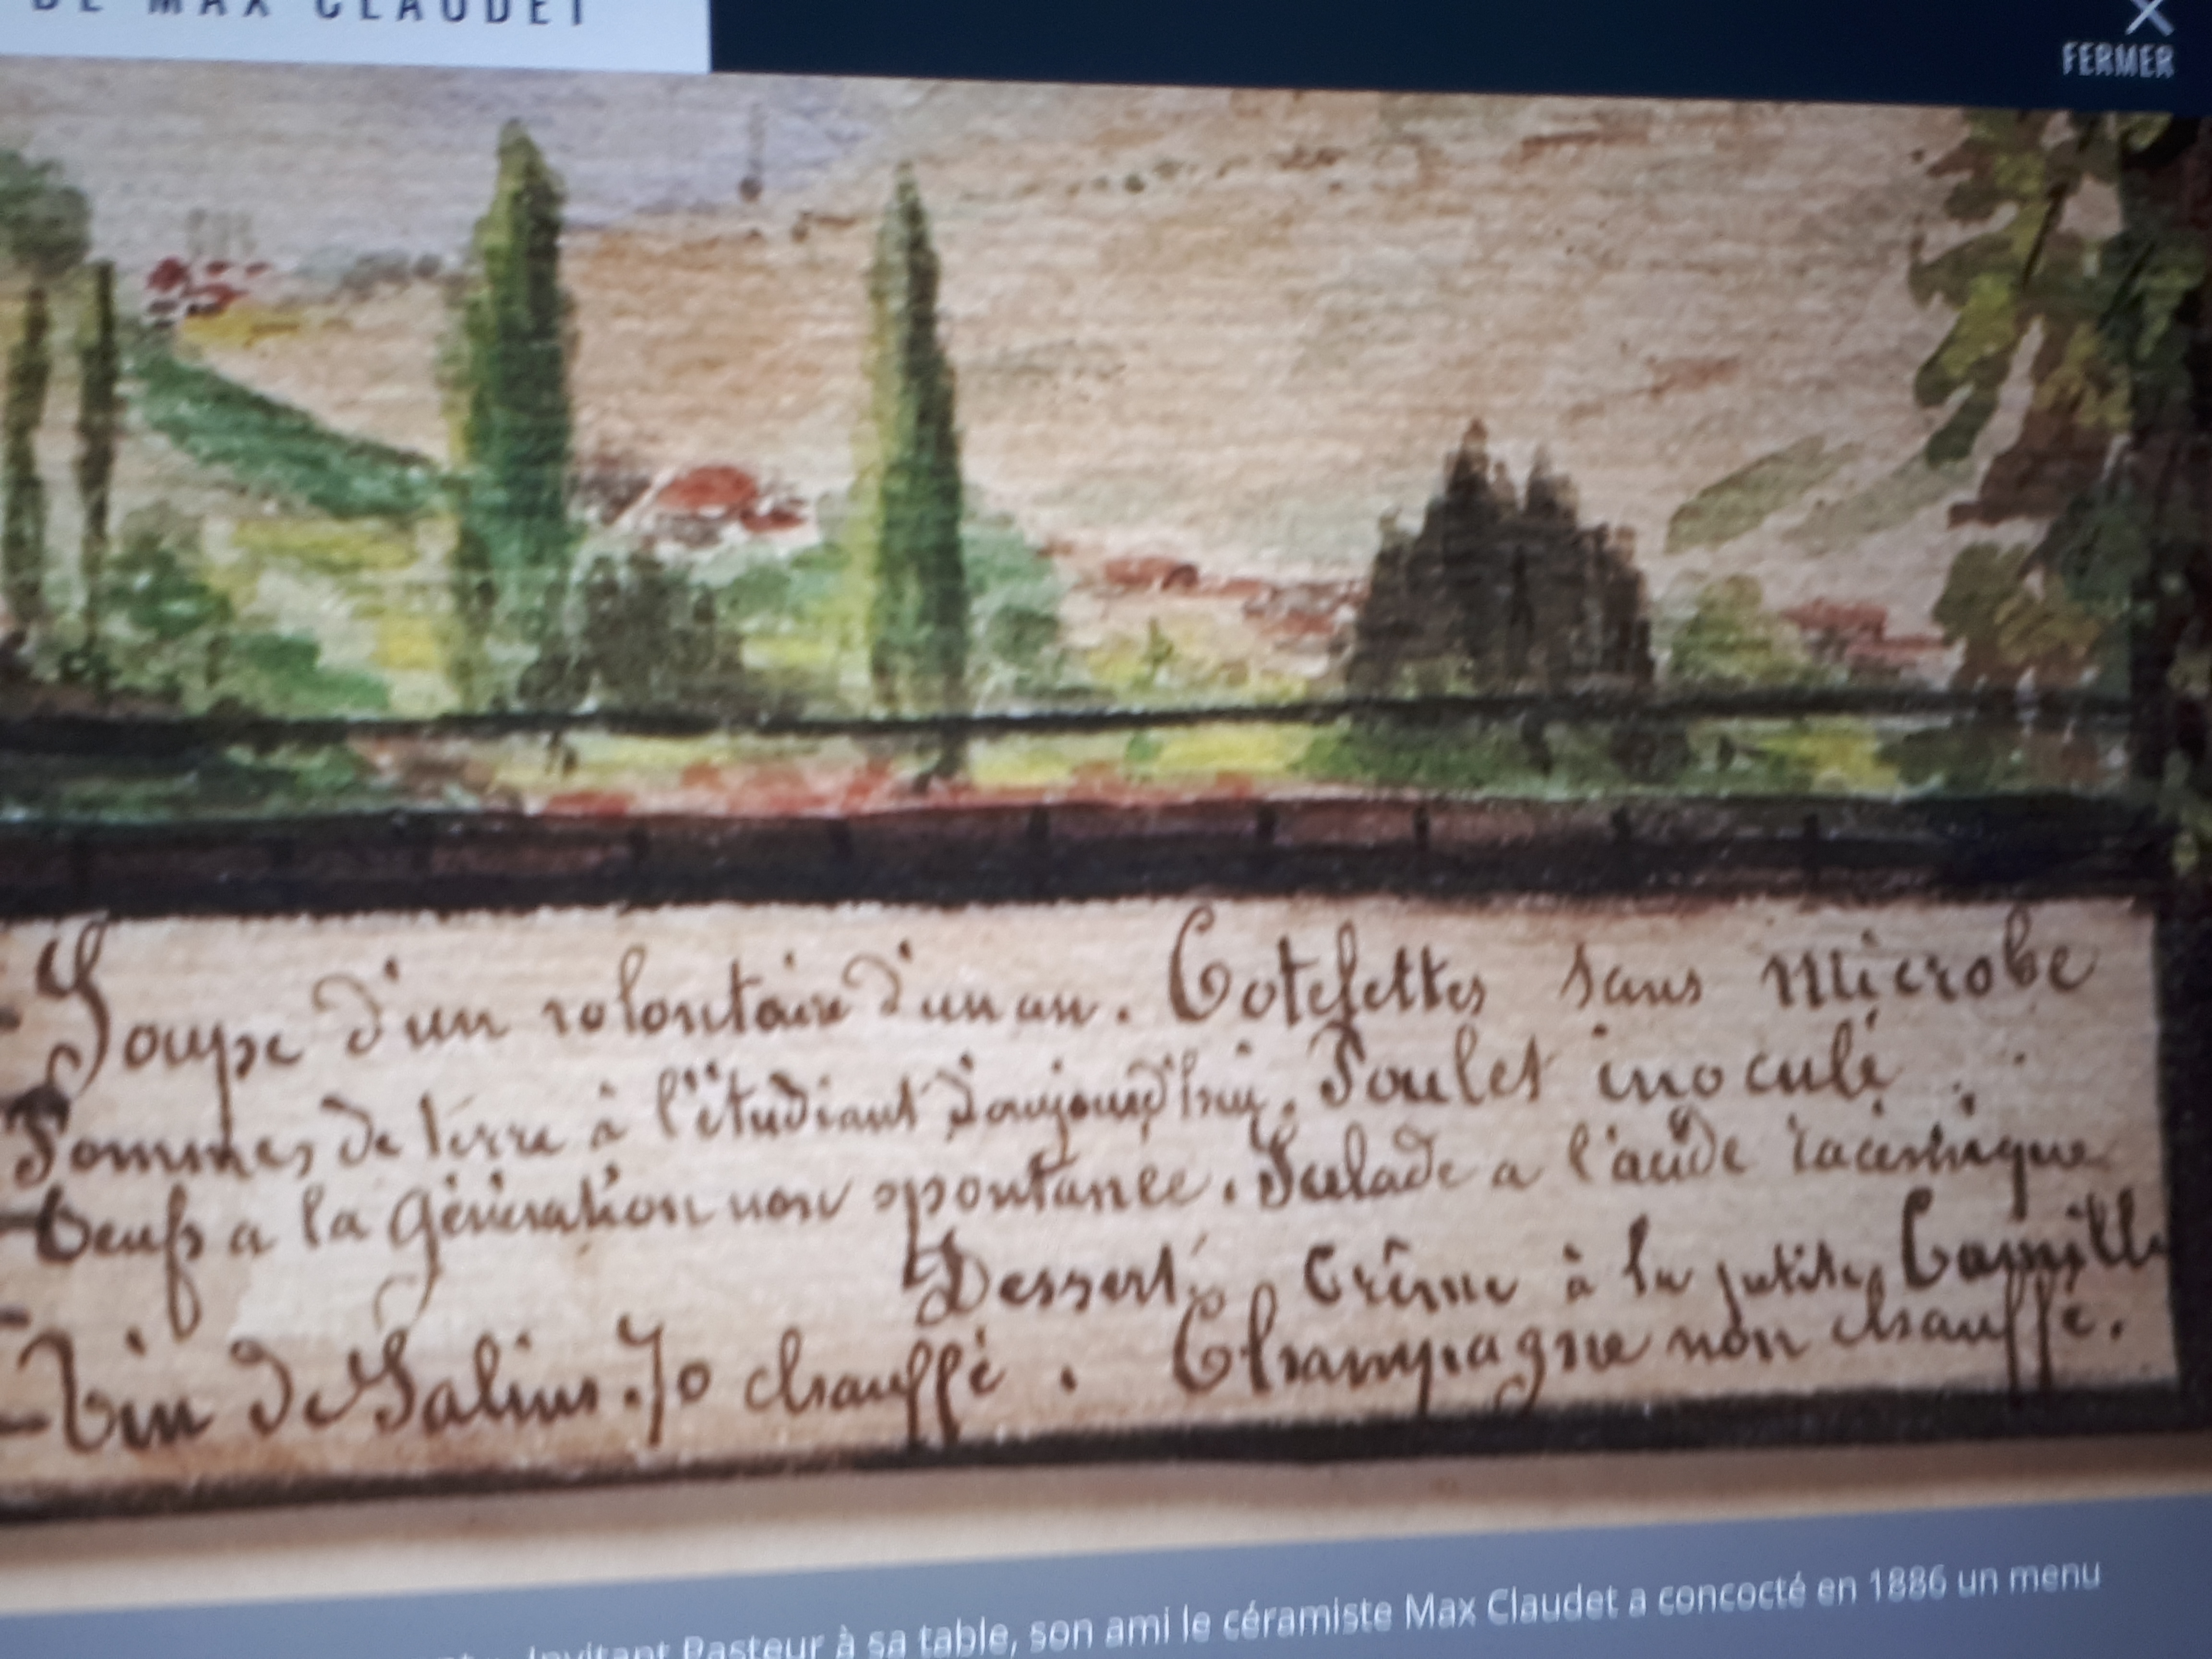 DE MAX CLAUDET
FERMER
Soupe d'un volontaire d'un an. Cotelettes sans microbe
Pommes de terre à l'étudiant d'aujourd'huy. Poulet inoculé
Oeufs a la génération non spontanee. Salade a l'acide racémique
Dessert, Crême à la petite Camille
Vin de Salins. 70 chauffé. Champagne non chauffé.
Invitant Pasteur à sa table, son ami le céramiste Max Claudet a concocté en 1886 un menu